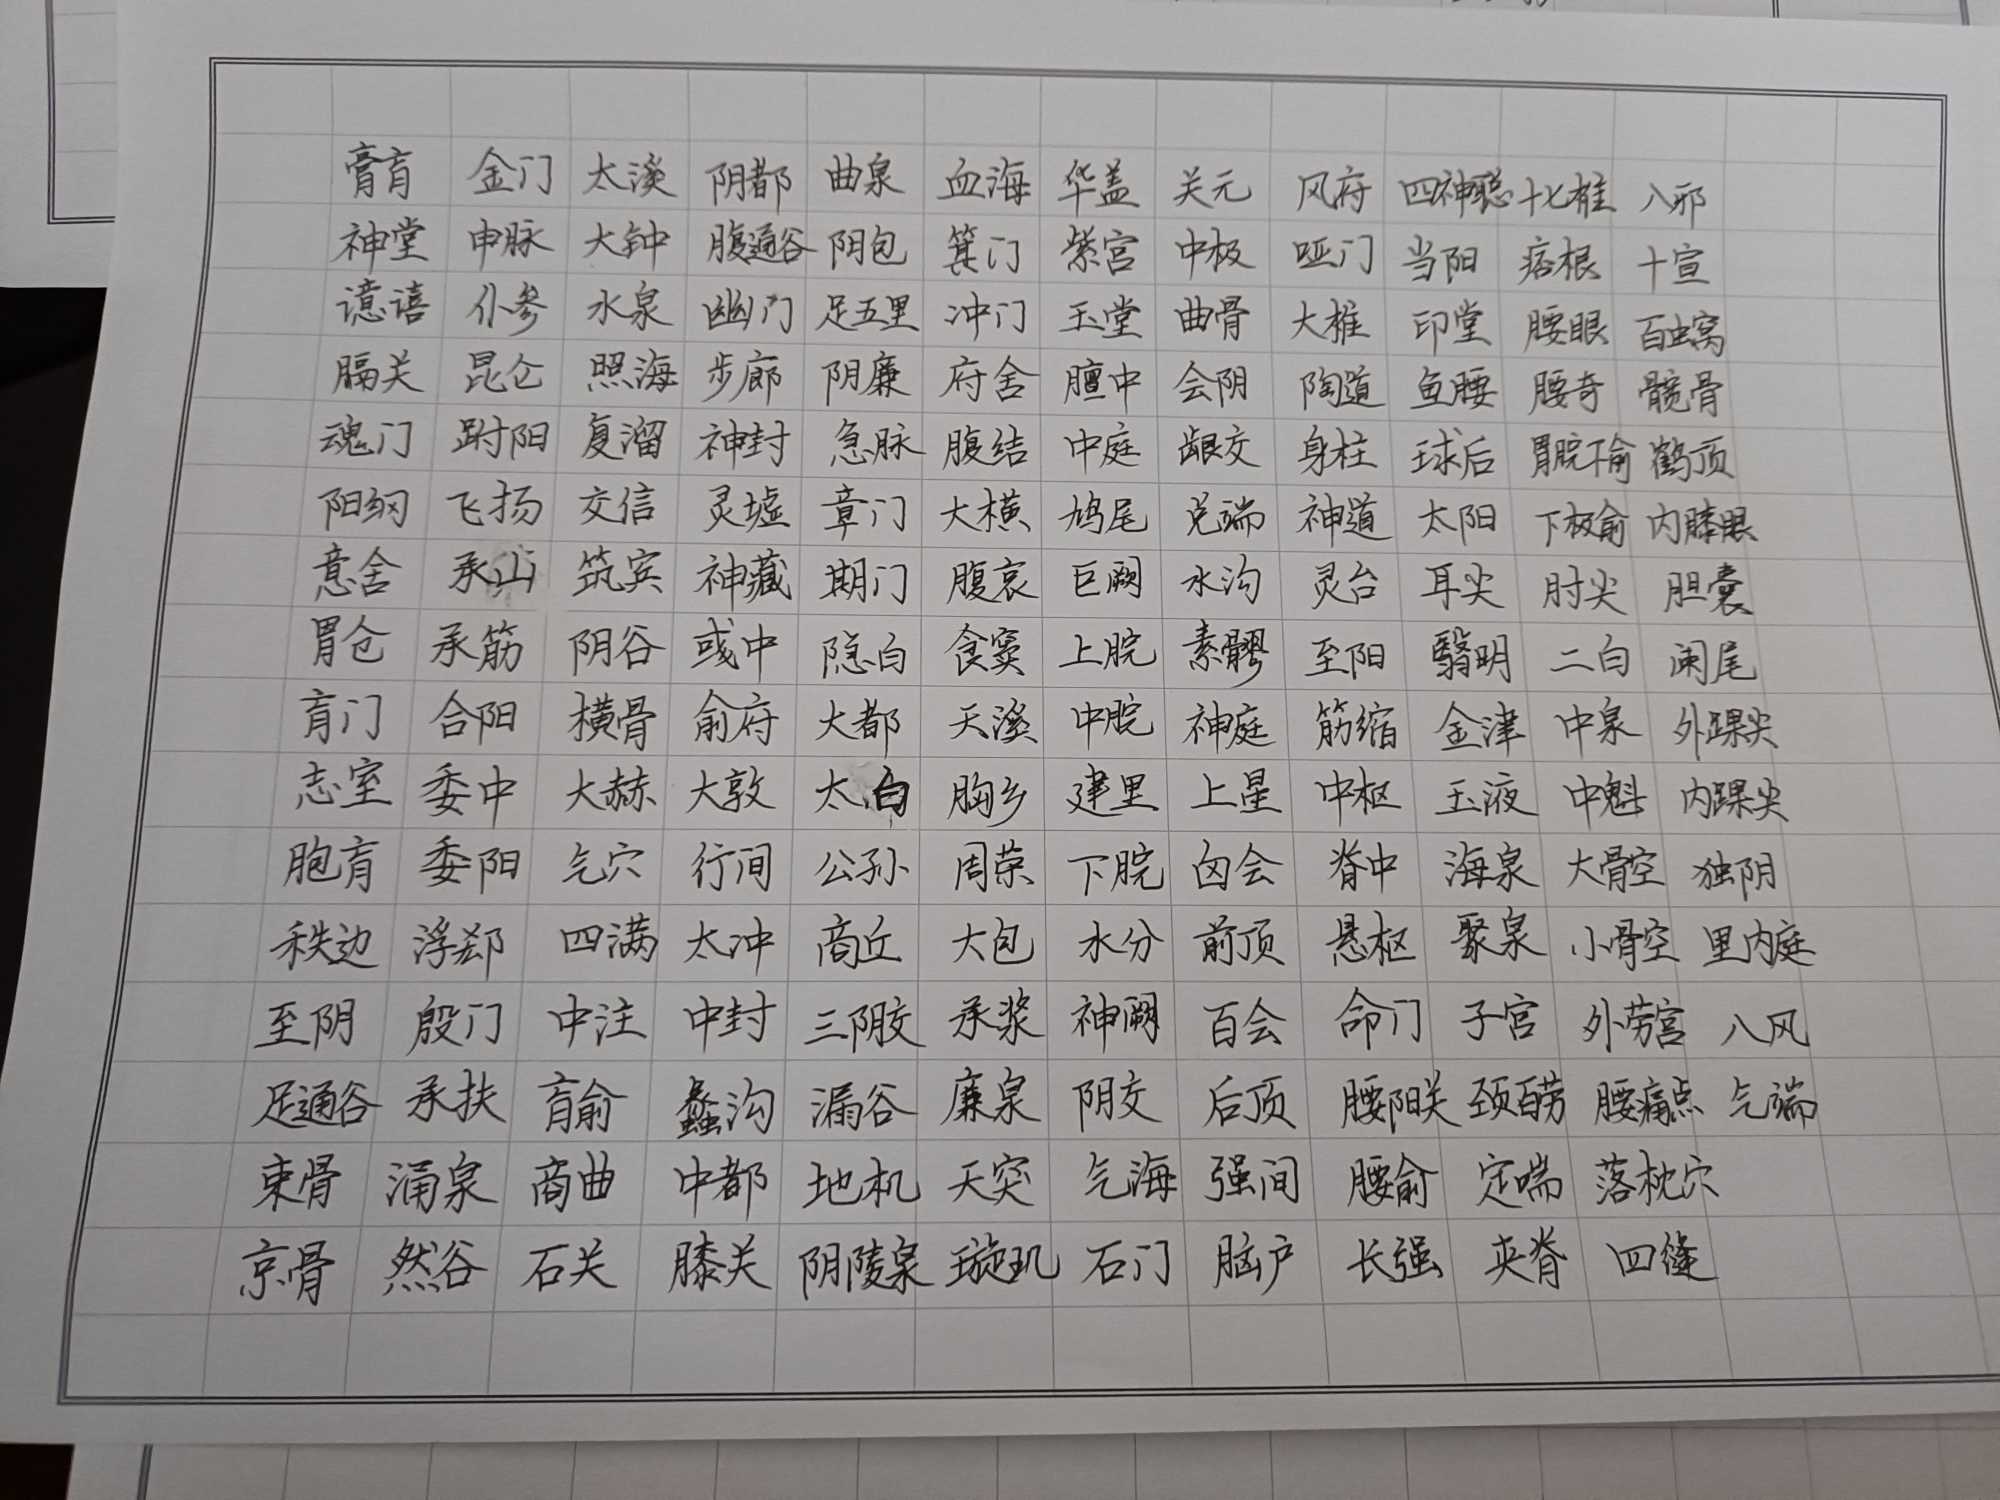 膏肓 金门 太溪 阴都 曲泉 血海 华盖 关元 风府 四神聪 十七椎 八邪
神堂 申脉 大钟 腹通谷 阴包 箕门 紫宫 中极 哑门 当阳 痞根 十宣
譩譆 仆参 水泉 幽门 足五里 冲门 玉堂 曲骨 大椎 印堂 腰眼 百虫窝
膈关 昆仑 照海 步廊 阴廉 府舍 膻中 会阴 陶道 鱼腰 腰奇 髋骨
魂门 跗阳 复溜 神封 急脉 腹结 中庭 龈交 身柱 球后 胃脘下俞 鹤顶
阳纲 飞扬 交信 灵墟 章门 大横 鸠尾 兑端 神道 太阳 下极俞 内膝眼
意舍 承山 筑宾 神藏 期门 腹哀 巨阙 水沟 灵台 耳尖 肘尖 胆囊
胃仓 承筋 阴谷 彧中 隐白 食窦 上脘 素髎 至阳 翳明 二白 阑尾
肓门 合阳 横骨 俞府 大都 天溪 中脘 神庭 筋缩 金津 中泉 外踝尖
志室 委中 大赫 大敦 太白 胸乡 建里 上星 中枢 玉液 中魁 内踝尖
胞肓 委阳 气穴 行间 公孙 周荣 下脘 囟会 脊中 海泉 大骨空 独阴
秩边 浮郄 四满 太冲 商丘 大包 水分 前顶 悬枢 聚泉 小骨空 里内庭
至阴 殷门 中注 中封 三阴交 承浆 神阙 百会 命门 子宫 外劳宫 八风
足通谷 承扶 肓俞 蠡沟 漏谷 廉泉 阴交 后顶 腰阳关 颈百劳 腰痛点 气端
束骨 涌泉 商曲 中都 地机 天突 气海 强间 腰俞 定喘 落枕穴
京骨 然谷 石关 膝关 阴陵泉 璇玑 石门 脑户 长强 夹脊 四缝